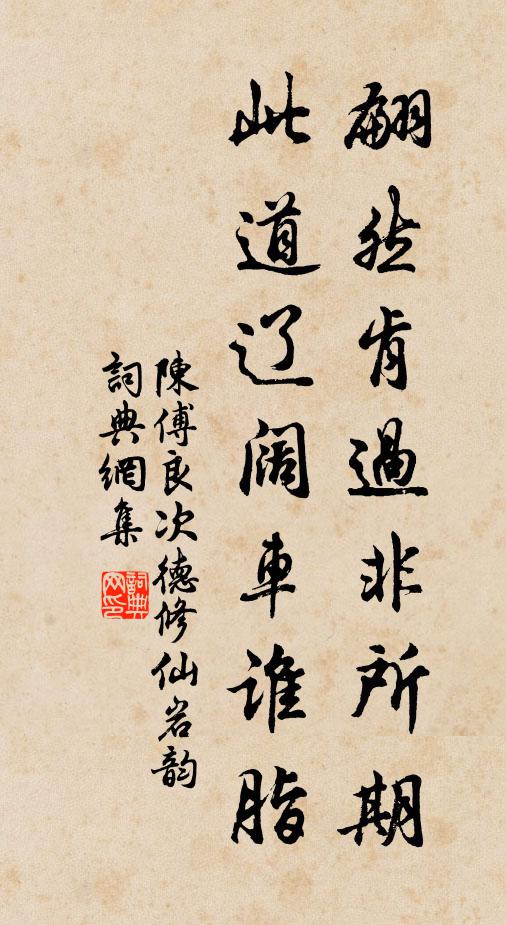 翩然肯過非所期
此道辽阔車谁脂
陳傅良次德修仙岩韵
詞典網集
詞典网印